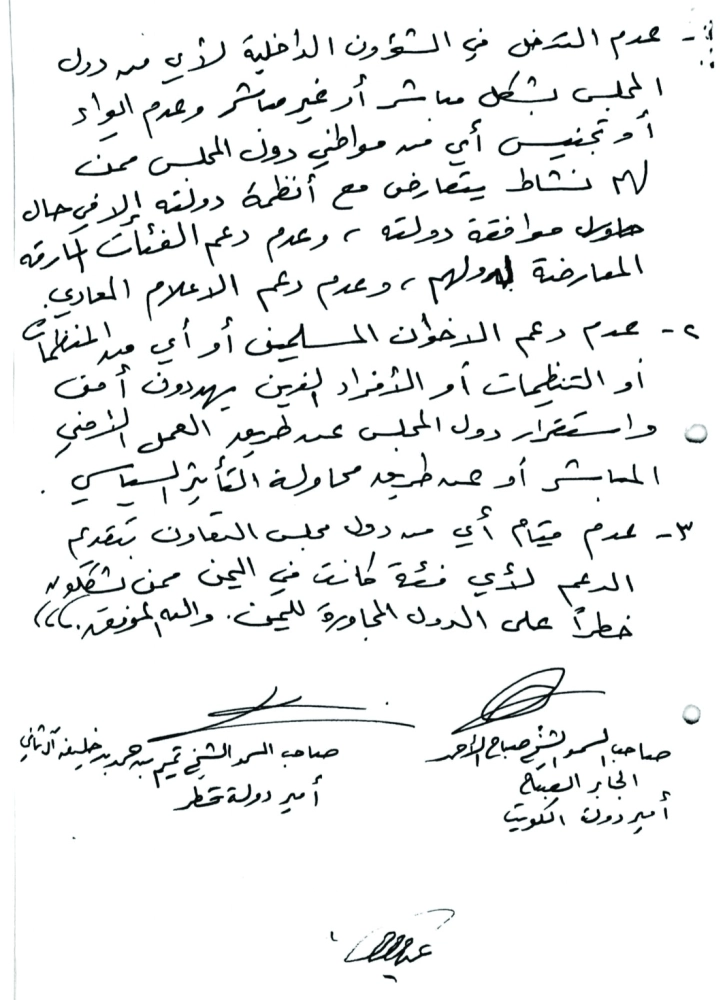 ١- عدم التدخل في الشؤون الداخلية لأي من دول
المجلس بشكل مباشر أو غير مباشر وعدم ايواء
أو تجنيس أي من مواطني دول المجلس ممن
لهم نشاط يتعارض مع أنظمة دولته إلا في حال
موافقة دولته ، وعدم دعم الفئات المارقه
المعارضة لدولهم ، وعدم دعم الاعلام المعادي.
٢- عدم دعم الاخوان المسلمين أو أي من المنظمات
أو التنظيمات أو الأفراد الذين يهددون أمن
واستقرار دول المجلس عن طريق العمل الأمني
المباشر أو عن طريق محاولة التأثير السياسي .
٣- عدم قيام أي من دول مجلس التعاون بتقديم
الدعم لأي فئة كانت في اليمن ممن يشكلون
خطراً على الدول المجاورة لليمن. والله الموفق.،،،
صاحب السمو الشيخ صباح الأحمد
الجابر الصباح
أمير دولة الكويت
صاحب السمو الشيخ تميم بن حمد بن خليفه آل ثاني
أمير دولة قطر